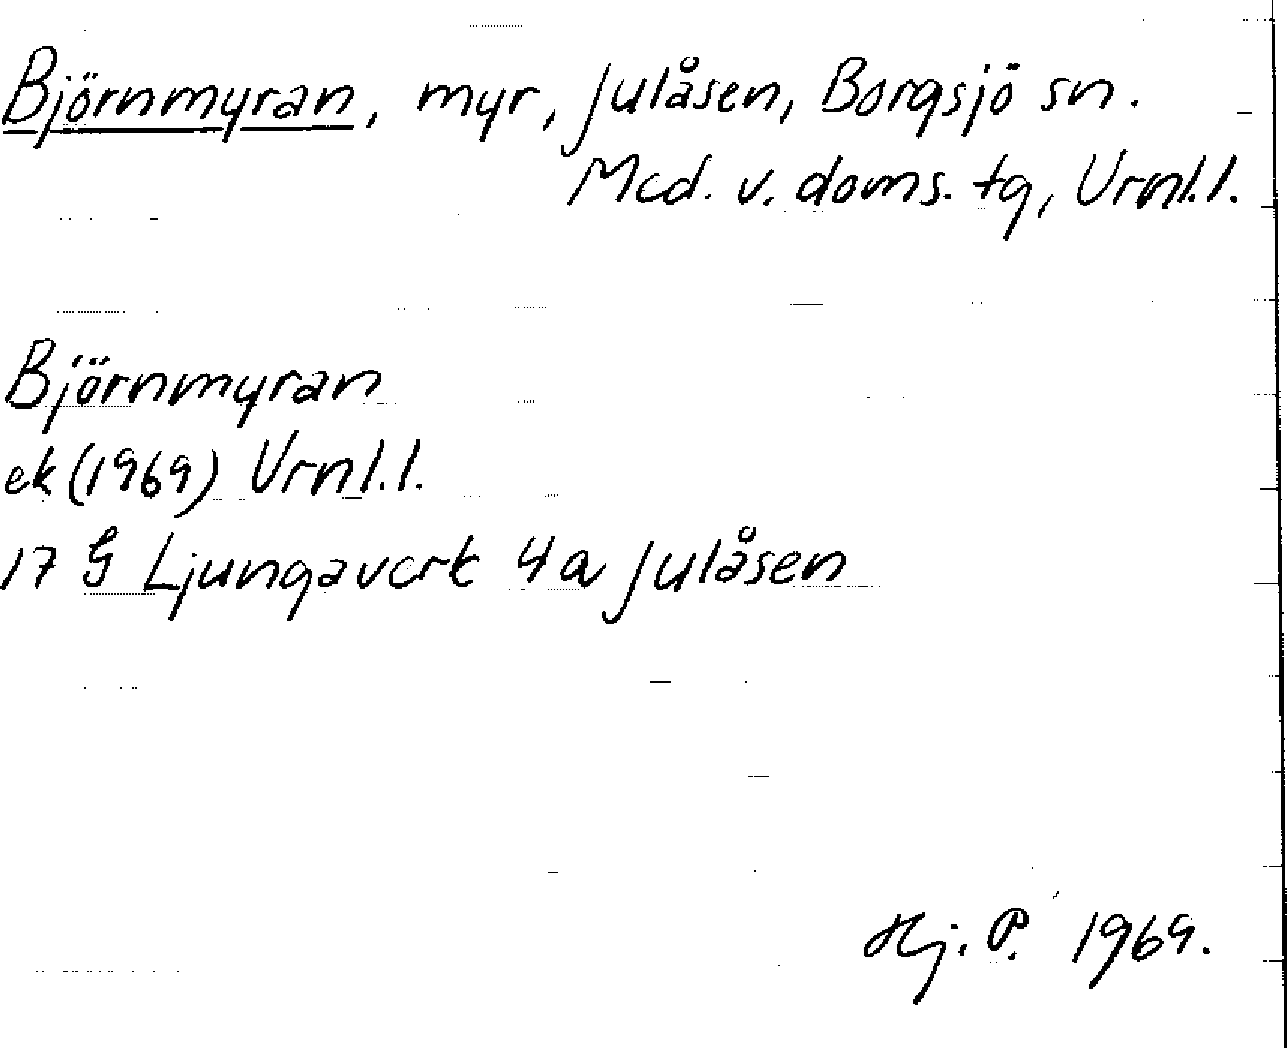 Björnmyran, myr, Julåsen, Borgsjö sn.
Med. v. doms. tg, Vrnl.l.
Björnmyran
ek (1969) Vrnl.l.
17 G Ljungaverk 4a Julåsen
Hj. P. 1969.